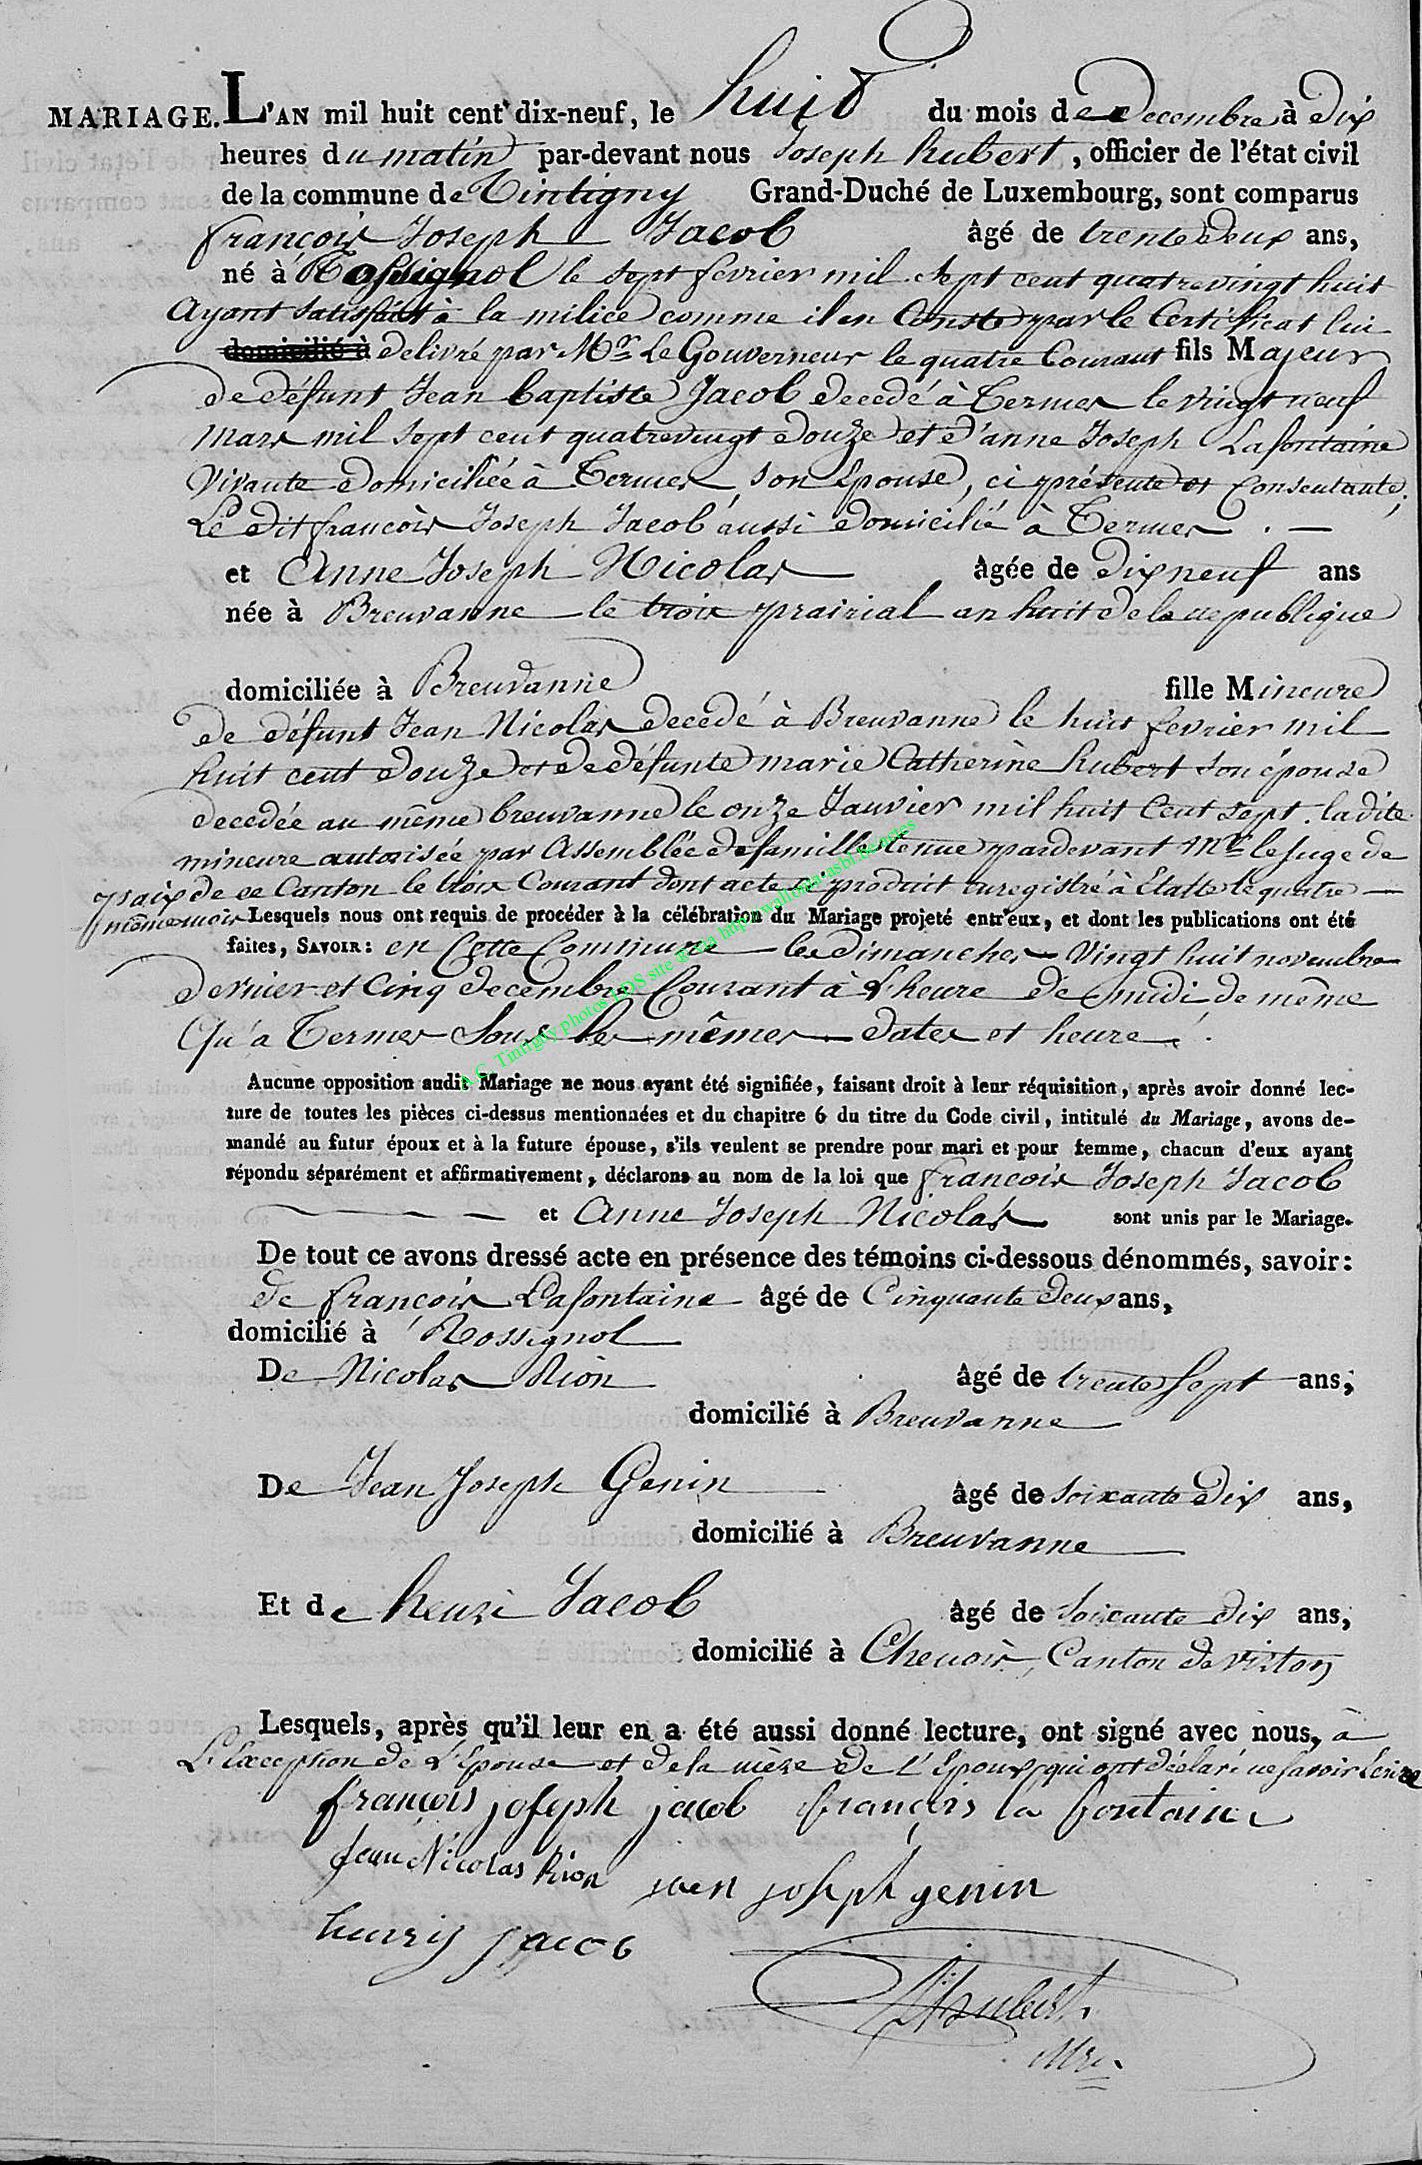 MARIAGE. L'AN mil huit cent dix-neuf, le huit du mois de Decembre à dix
heures du matin par-devant nous Joseph hubert, officier de l'état civil
de la commune de Tintigny Grand-Duché de Luxembourg, sont comparus
françois Joseph Jacob âgé de trente deux ans,
né à Rossignol le sept fevrier mil sept cent quatrevingt huit
Ayant satisfait à la milice comme il en Conste par le Certificat lui
domicilié à delivré par Mr. Le Gouverneur le quatre Courant fils Majeur
de défunt Jean baptiste Jacob decedé à Termes le vingt neuf
mars mil sept cent quatrevingt douze et d'anne Joseph Lafontaine
Vivante domiciliée à Termes, son Epouse, ci présente et Consentante,
Le dit françois Joseph Jacob aussi domicilié à Termes . —
et Anne Joseph Nicolas âgée de dix neuf ans
née à Breuvanne le trois prairial an huit de la republique
domiciliée à Breuvanne fille Mineure
de défunt Jean Nicolas decedé à Breuvanne le huit fevrier mil
huit cent douze et de défunte marie Catherine hubert son épouse
decedée au même breuvanne le onze Janvier mil huit Cent sept. la dite
mineure autorisée par Assemblée de famille tenue pardevant Mr. le Juge de
paix de ce Canton le trois Courant dont acte ci produit enregistré à Etalle le quatre —
même mois Lesquels nous ont requis de procéder à la célébration du Mariage projeté entr'eux, et dont les publications ont été
faites, SAVOIR: en Cette Commune les dimanches Vingt huit novembre
dernier et Cinq decembre Courant à L'heure de midi de même
Qu'a Termes Sous les mêmes dates et heure.
Aucune opposition audit Mariage ne nous ayant été signifiée, faisant droit à leur réquisition, après avoir donné lec-
ture de toutes les pièces ci-dessus mentionnées et du chapitre 6 du titre du Code civil, intitulé du Mariage, avons de-
mandé au futur époux et à la future épouse, s'ils veulent se prendre pour mari et pour femme, chacun d'eux ayant
répondu séparément et affirmativement, déclarons au nom de la loi que françois Joseph Jacob
et Anne Joseph Nicolas sont unis par le Mariage.
De tout ce avons dressé acte en présence des témoins ci-dessous dénommés, savoir:
de françois Lafontaine âgé de Cinquante deux ans,
domicilié à Rossignol
De Nicolas Rion âgé de trente sept ans,
domicilié à Breuvanne
De Jean Joseph Genin âgé de soixante dix ans,
domicilié à Breuvanne
Et de henri Jacob âgé de Soixante dix ans,
domicilié à Chenois, Canton de virton
Lesquels, après qu'il leur en a été aussi donné lecture, ont signé avec nous, à
L'Exception de L'Epouse et de la mère de L'Epoux qui ont déclaré ne savoir Ecrire
françois joseph jacob françois la fontaine
Jean Nicolas Rion jean joseph genin
henrij jacob
J. hubert
Mre.